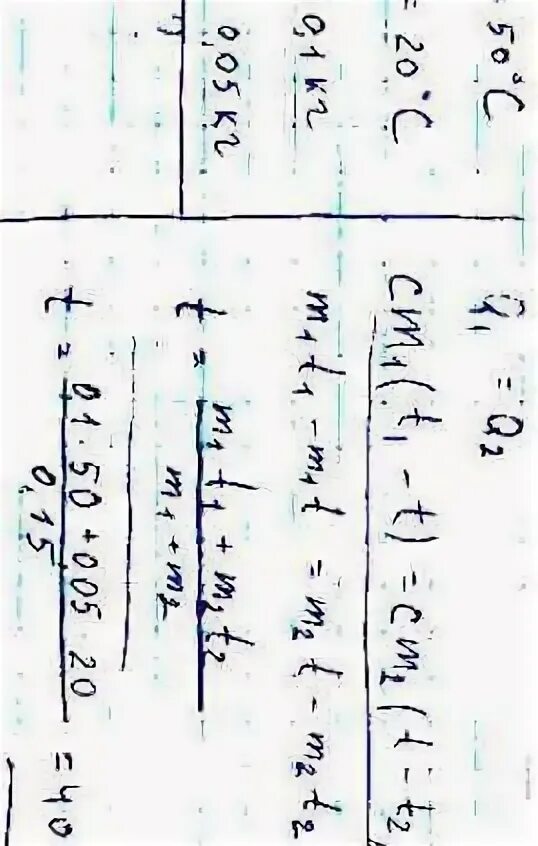 = 50°C
= 20°C
0,1 кг
0,05 кг
Q₁ = Q₂
cm₁(t₁ - t) = cm₂(t - t₂
m₁t₁ - m₁t = m₂t - m₂t₂
t = m₁t₁ + m₂t₂
m₁ + m₂
t = 0,1 · 50 + 0,05 20
0,15
= 40